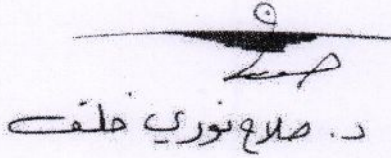 د. صلاح نوري خلف